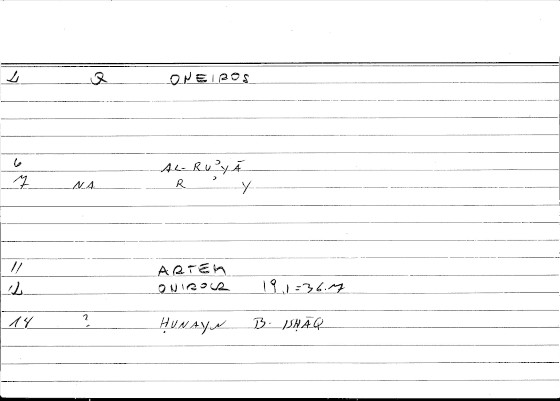 2 Q ONEIROS
6 AL-RUʾYĀ
7 NA R ʾ Y
11 ARTEM
12 ONIROCR 19,1=36.7
14 ? ḤUNAYN B. ISḤĀQ